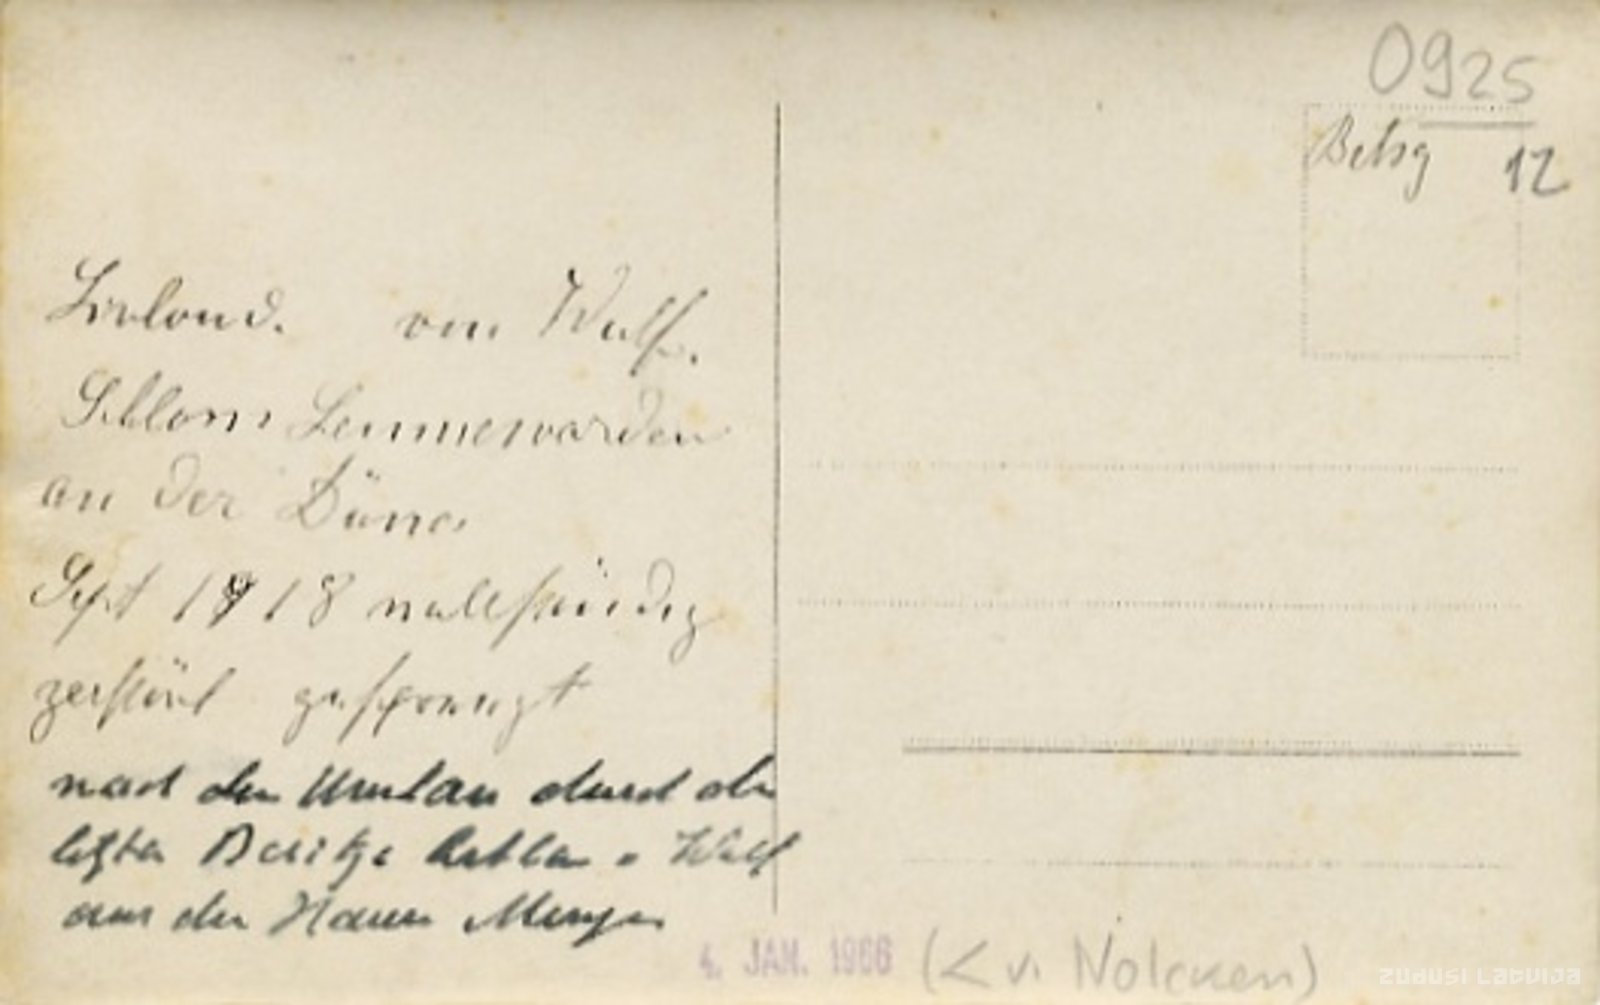 0925
Betsg 12
Livland. von Wulf.
Schloss Lennewarden
an der Düna
Sept 1918 vollständig
zerstört gesprengt
nach dem Umbau durch den
letzten Besitzer v Wulf
aus dem Hause Menzen
4. JAN. 1966 (< v. Nolcken)
zudusi Latvija